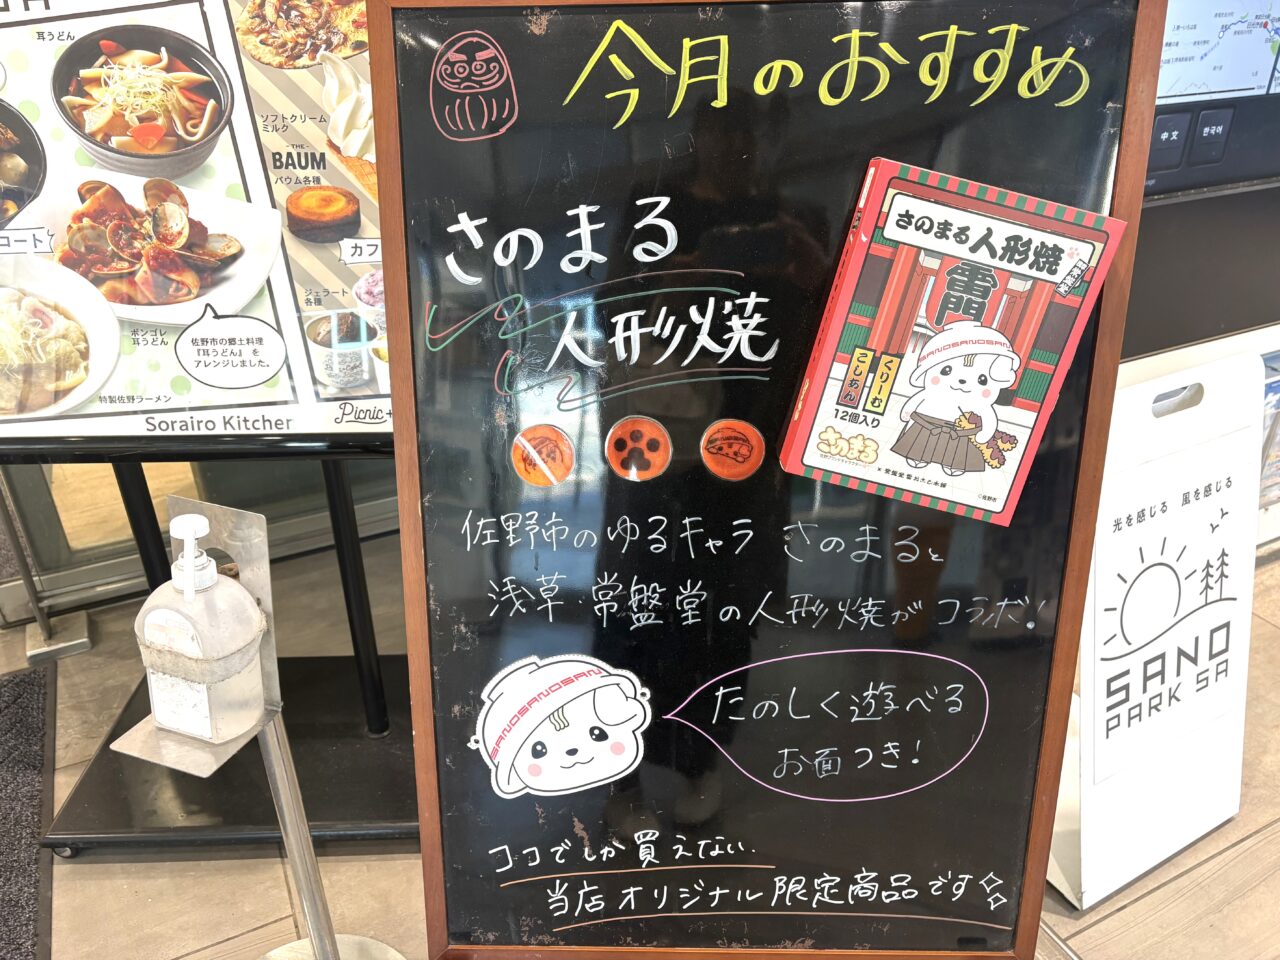 耳うどん
ソフトクリーム
ミルク
THE
BAUM
バウム各種
コート
カフ
ジェラート
各種
ボンゴレ
耳うどん
佐野市の郷土料理
『耳うどん』を
アレンジしました。
特製佐野ラーメン
Sorairo Kitchen
Picnic+
今月のおすすめ
さのまる
人形焼
さのまる人形焼
雷門
SANOSANOSAN
くりーむ
こしあん
12個入り
さのまる
©佐野市
佐野市のゆるキャラ さのまると
浅草・常盤堂の人形焼がコラボ!
SANOSANOSAN
たのしく遊べる
お面つき!
ココでしか買えない
当店オリジナル限定商品です
中文
한국어
光を感じる 風を感じる
SANO
PARK SA